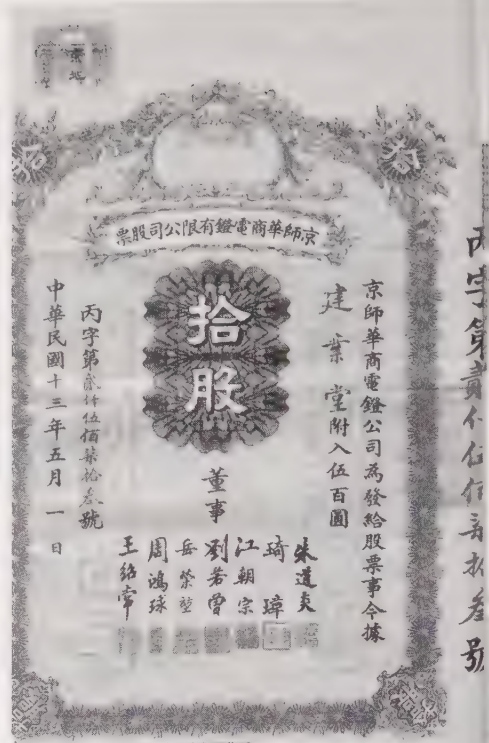 拾
拾
京師華商電鐙有限公司股票
拾股
京師華商電鐙公司為發給股票事今據
建業堂附入伍百圓
董事
朱道炎
琦璋
江朝宗
劉若曾
岳榮堃
周鴻球
王紹常
丙字第貳仟伍佰柒拾叁號
中華民國十三年五月一日
丙字第貳仟伍佰柒拾叁號